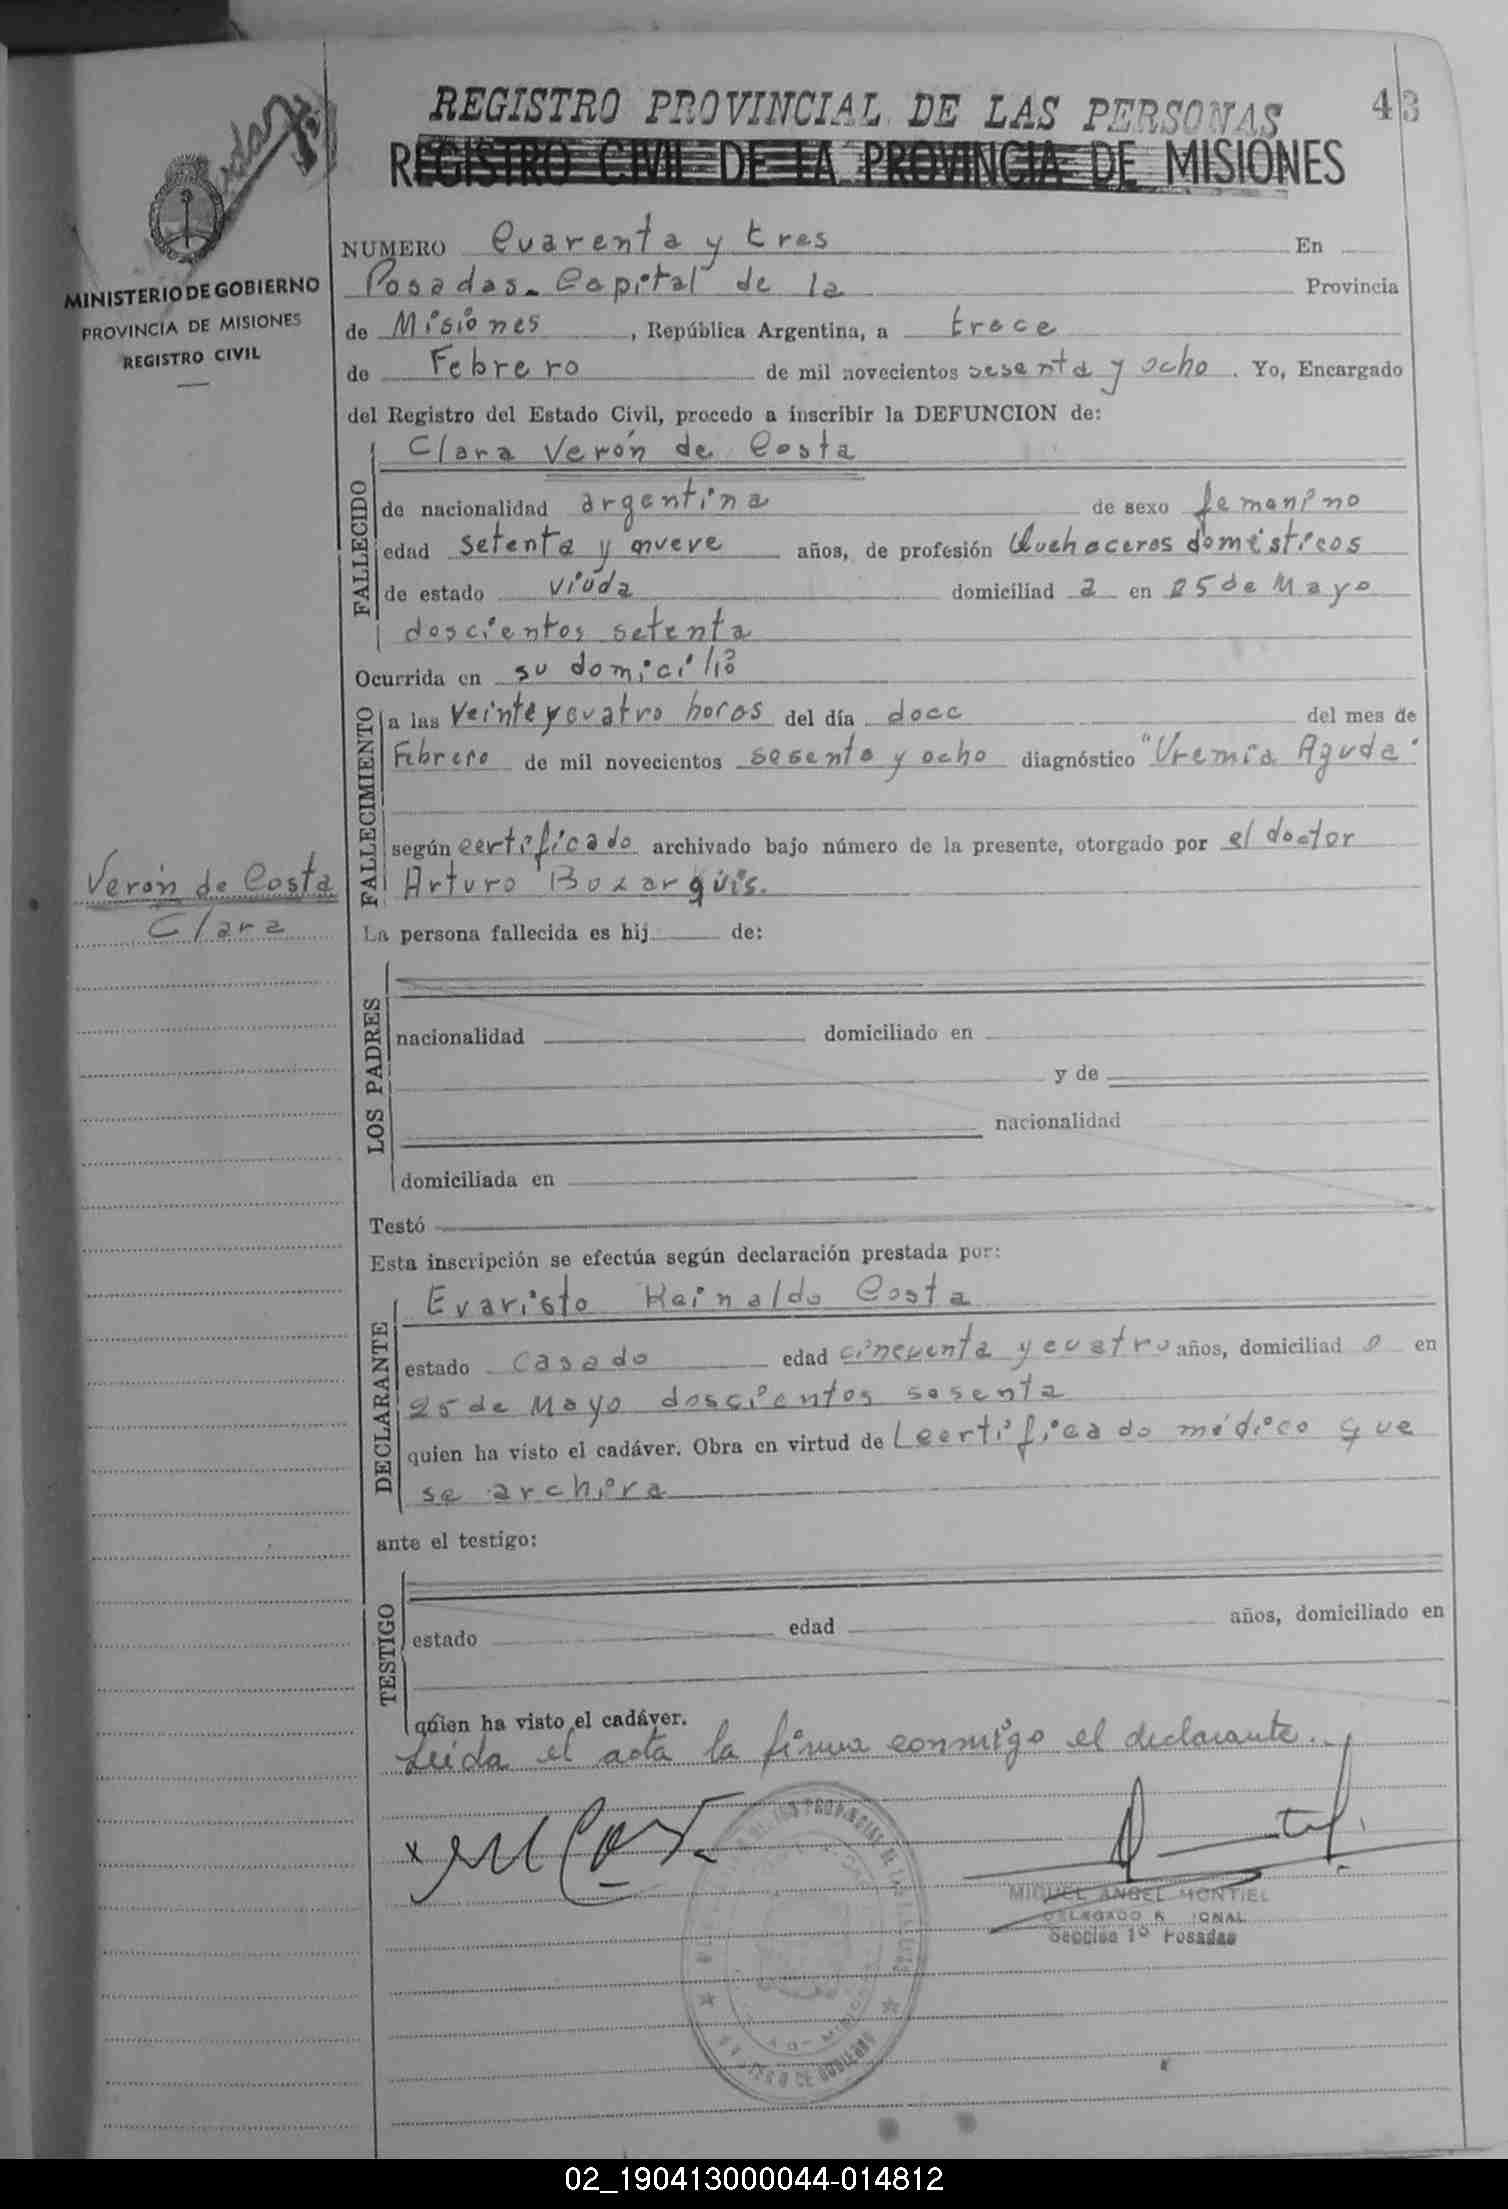 REGISTRO PROVINCIAL DE LAS PERSONAS
43
REGISTRO CIVIL DE LA PROVINCIA DE MISIONES
MINISTERIO DE GOBIERNO
PROVINCIA DE MISIONES
REGISTRO CIVIL
NUMERO Cuarenta y tres En
Posadas. Capital de la Provincia
de Misiones, República Argentina, a trece
de Febrero de mil novecientos sesenta y ocho. Yo, Encargado
del Registro del Estado Civil, procedo a inscribir la DEFUNCION de:
FALLECIDO
Clara Verón de Costa
de nacionalidad argentina de sexo femenino
edad setenta y nueve años, de profesión Quehaceres domésticos
de estado viuda domiciliad a en 25 de Mayo
doscientos setenta
Ocurrida en su domicilio
FALLECIMIENTO
a las Veinte y cuatro horas del día doce del mes de
Febrero de mil novecientos sesenta y ocho diagnóstico "Uremia Aguda"
según certificado archivado bajo número de la presente, otorgado por el doctor
Arturo
Verón de Costa
Clara
La persona fallecida es hij de:
LOS PADRES
nacionalidad domiciliado en
y de
nacionalidad
domiciliada en
Testó
Esta inscripción se efectúa según declaración prestada por:
DECLARANTE
Evaristo Reinaldo Costa
estado casado edad cincuenta y cuatro años, domiciliad o en
25 de Mayo doscientos sesenta
quien ha visto el cadáver. Obra en virtud de certificado médico que
se archiva
ante el testigo:
TESTIGO
estado edad años, domiciliado en
quien ha visto el cadáver.
Leida el acta la firma conmigo el declarante.
MIGUEL ANGEL MONTIEL
DELEGADO
Sección 1º Posadas
02_190413000044-014812